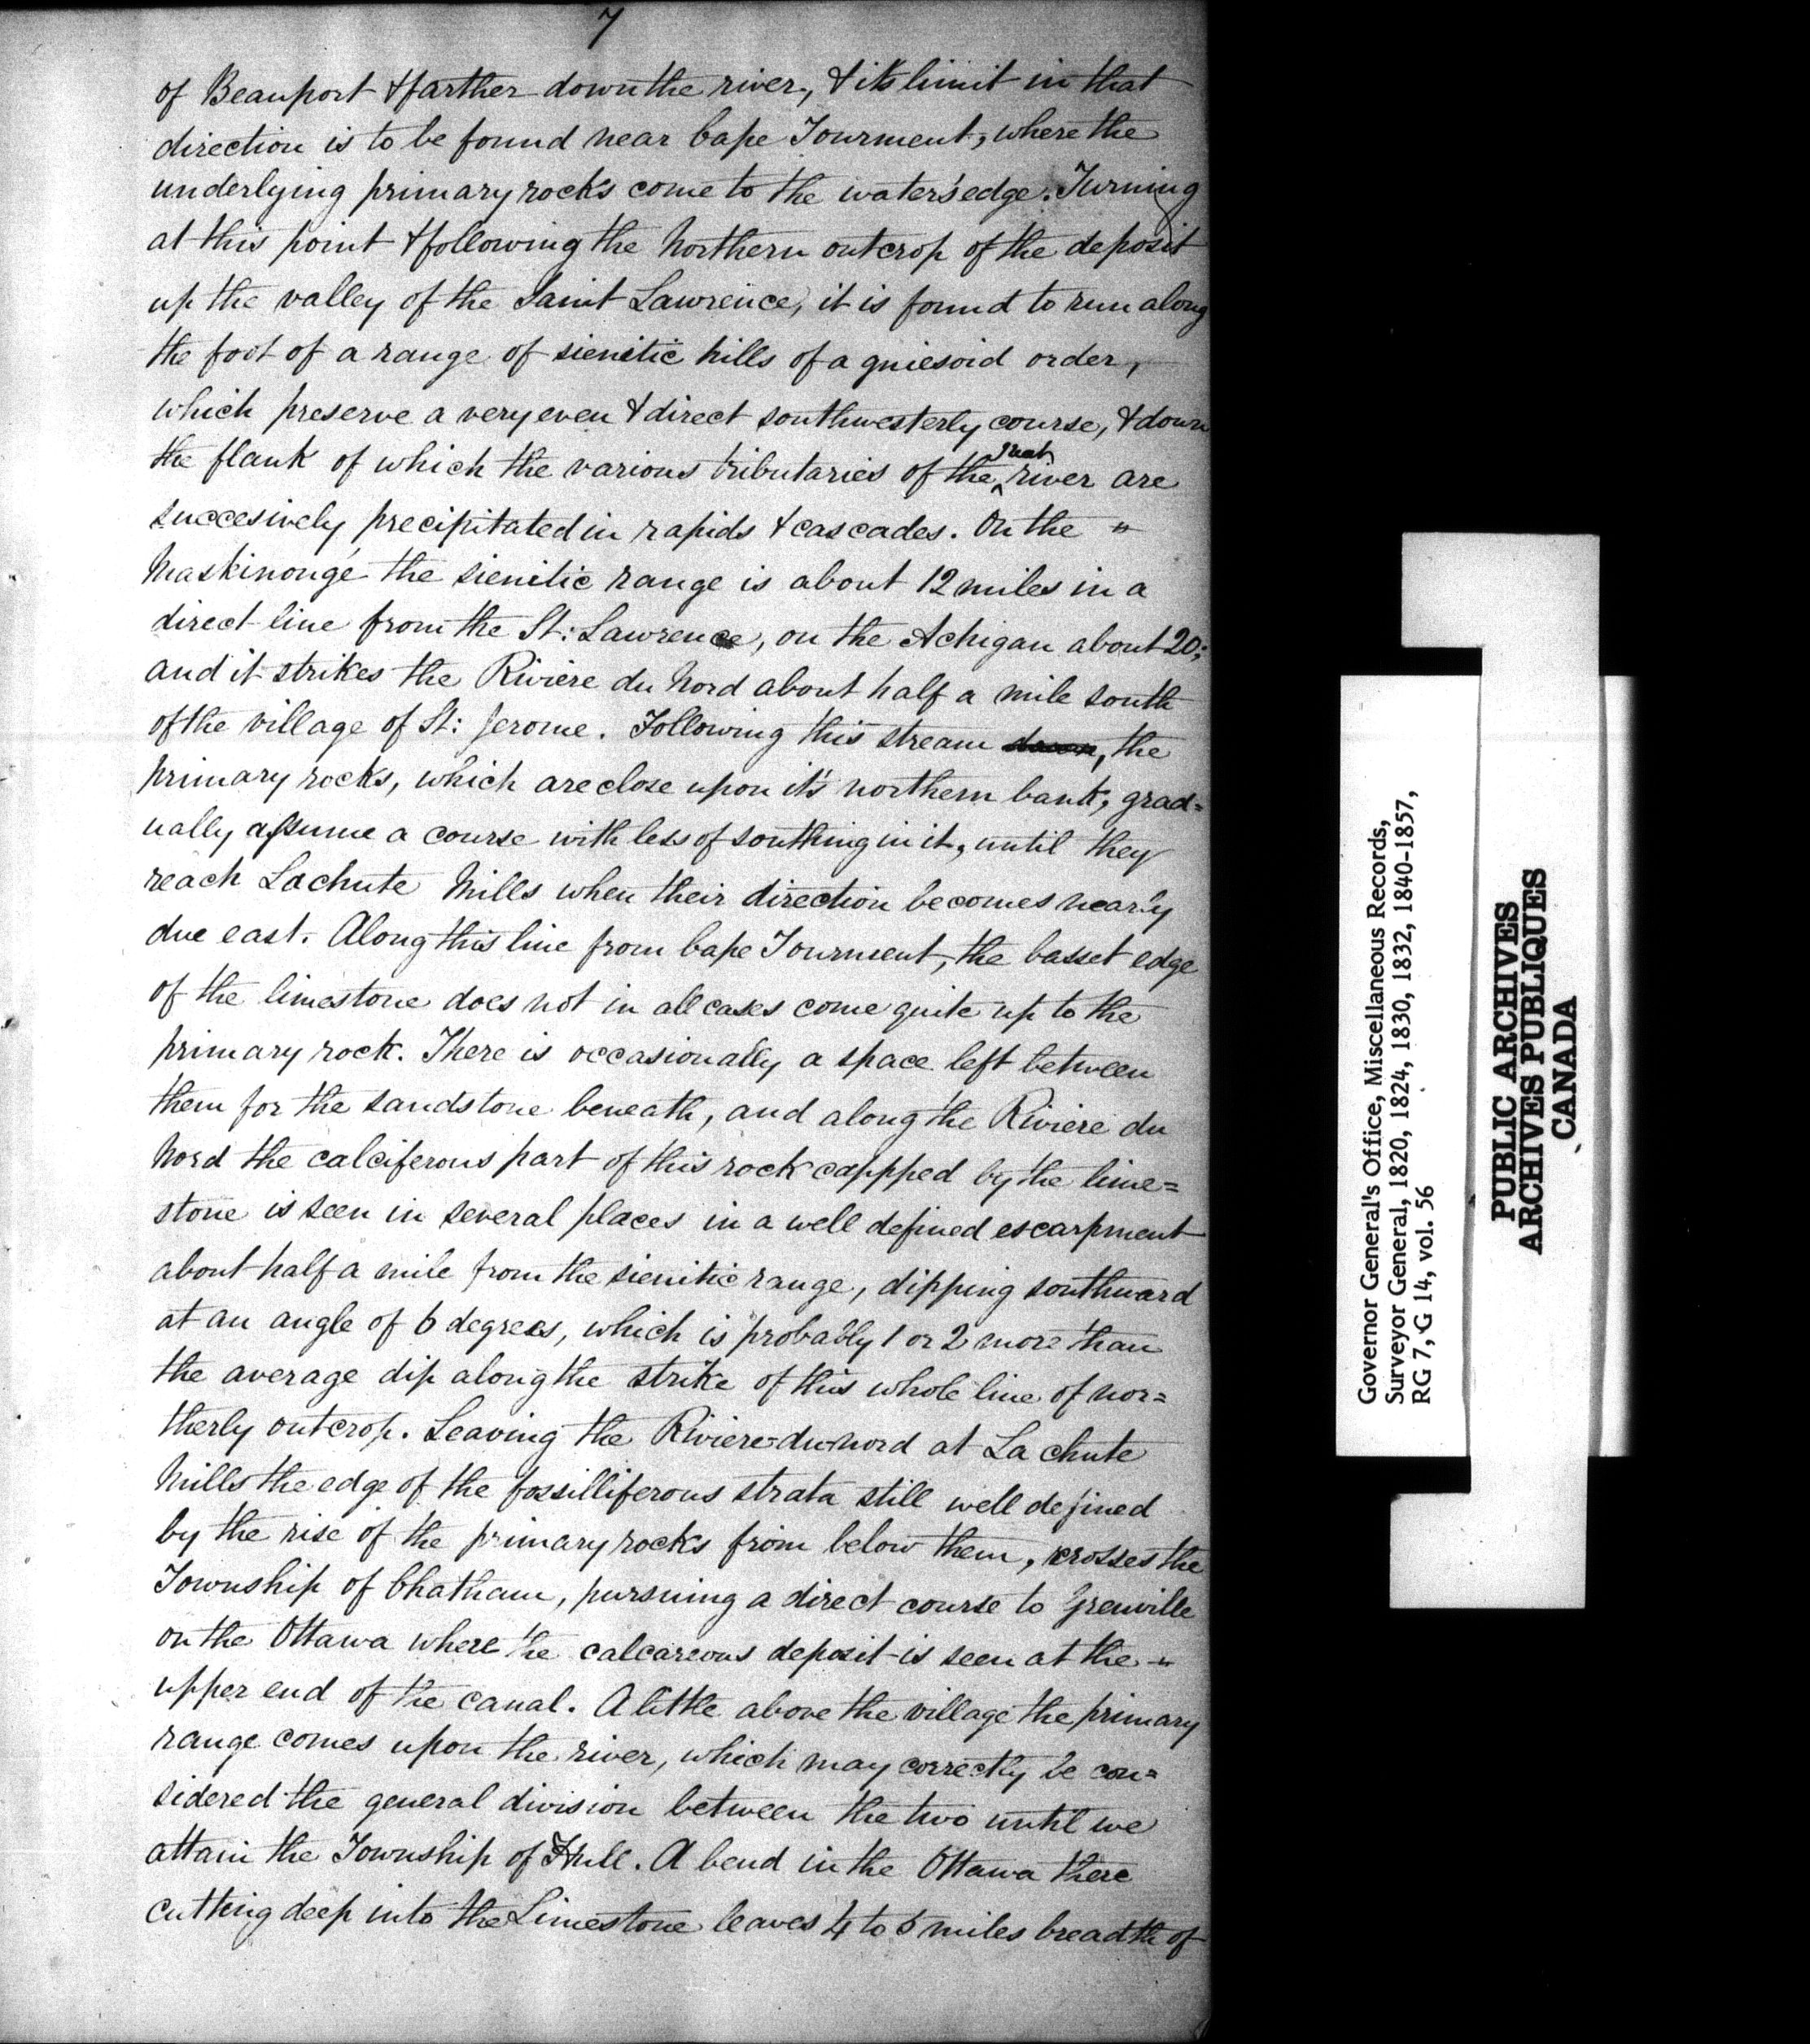 7
of Beauport & farther down the river, & its limit in that
direction is to be found near Cape Tourment, where the
underlying primary rocks come to the water's edge. Turning
at this point & following the Northern outcrop of the deposit
up the valley of the Saint Lawrence, it is found to run along
the foot of a range of sienitic hills of a gniesoid order,
which preserve a very even & direct southwesterly course, & down
the flank of which the various tributaries of the great river are
succesively precipitated in rapids & cascades. On the "
Maskinongé the sienitic range is about 12 miles in a
direct line from the St: Lawrence, on the Achigan about 20;
and it strikes the Riviere du Nord about half a mile south
of the village of St: Jerome. Following this stream down, the
primary rocks, which are close upon it's northern bank, grad=
ually assume a course with less of southing in it, until they
reach Lachute Mills when their direction becomes nearly
due east. Along this line from Cape Tourment, the basset edge
of the limestone does not in all cases come quite up to the
primary rock. There is occasionally a space left between
them for the sandstone beneath, and along the Riviere du
Nord the calciferous part of this rock cappped by the lime=
stone is seen in several places in a well defined escarpment
about half a mile from the sienitic range, dipping southward
at an angle of 6 degrees, which is probably 1 or 2 more than
the average dip along the strike of this whole line of nor=
therly outcrop. Leaving the Riviere-du-nord at La chute
Mills the edge of the fossilliferous strata still well defined
by the rise of the primary rocks from below them, crosses the
Township of Chatham, pursuing a direct course to Grenville
on the Ottawa where the calcareous deposit is seen at the "
upper end of the canal. A little above the village the primary
range comes upon the river, which may correctly be con=
sidered the general division between the two until we
attain the Township of Hull. A bend in the Ottawa there
cutting deep into the Limestone leaves 4 to 5 miles breadth of
Governor General's Office, Miscellaneous Records,
Surveyor General, 1820, 1824, 1830, 1832, 1840-1857,
RG 7, G 14, vol. 56
PUBLIC ARCHIVES
ARCHIVES PUBLIQUES
CANADA